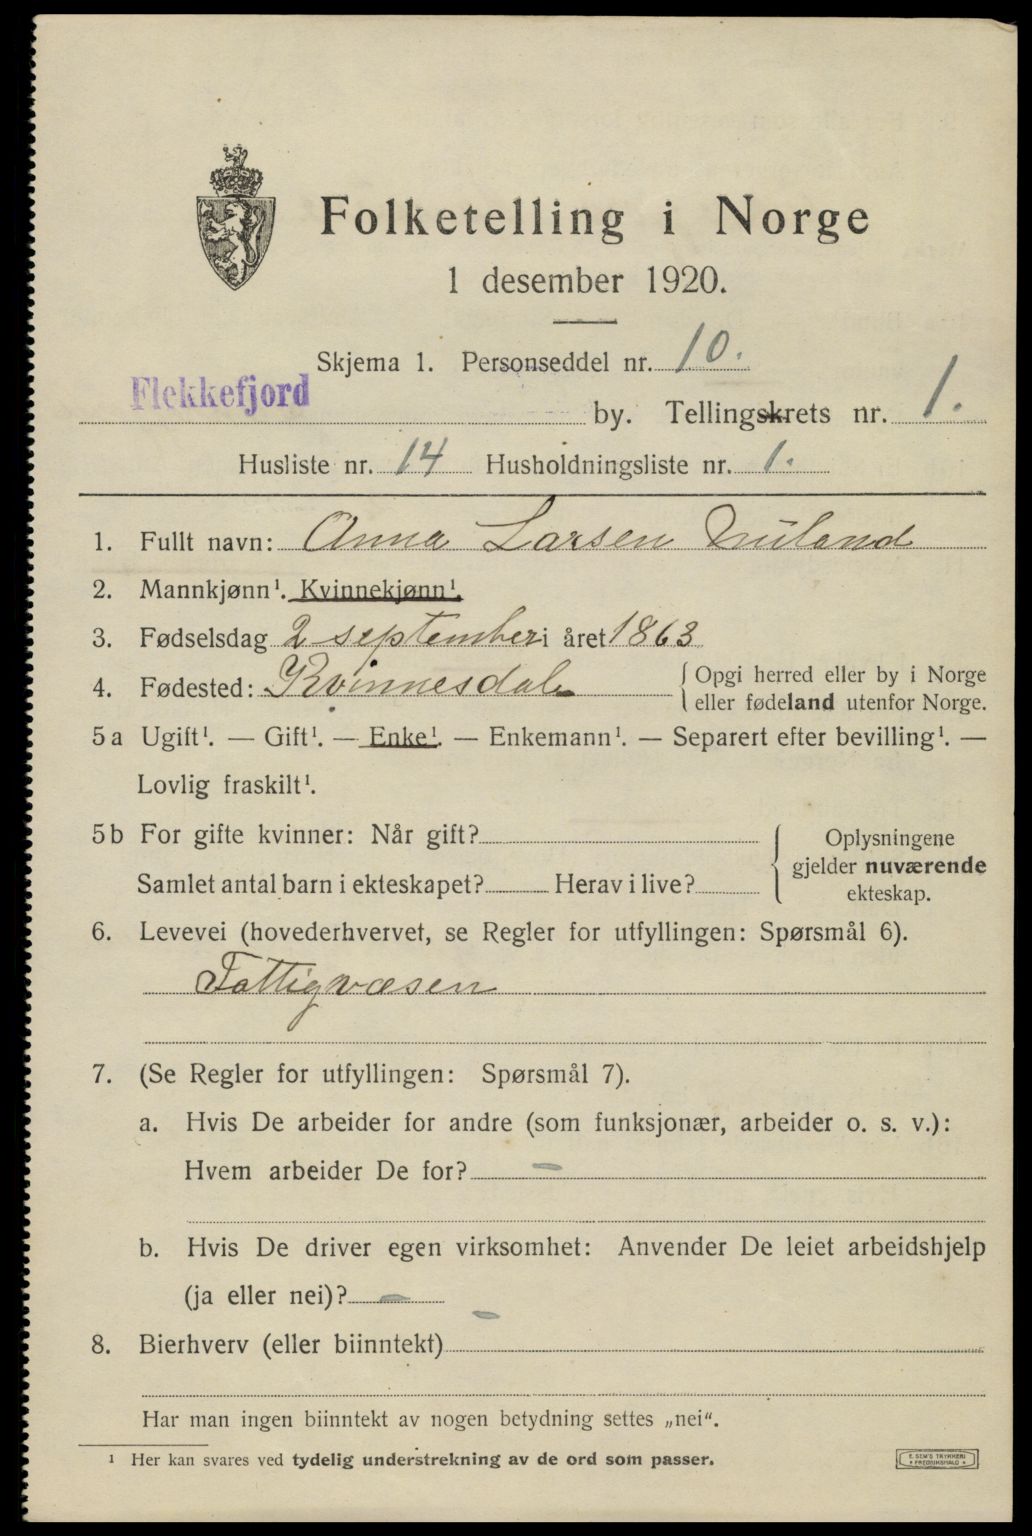 Folketelling i Norge
1 desember 1920.
Skjema 1. Personseddel nr. 10.
Flekkefjord by. Tellingskrets nr. 1.
Husliste nr. 14 Husholdningsliste nr. 1.
1. Fullt navn: Anna Larsen
2. Mannkjønn¹. Kvinnekjønn¹.
3. Fødselsdag 2 september i året 1863
4. Fødested: Kvinnesdal { Opgi herred eller by i Norge
eller fødeland utenfor Norge.
5a Ugift¹. — Gift¹. — Enke¹. — Enkemann¹. — Separert efter bevilling¹. —
Lovlig fraskilt¹.
5b For gifte kvinner: Når gift?
Samlet antal barn i ekteskapet? Herav i live?
Oplysningene
gjelder nuværende
ekteskap.
6. Levevei (hovederhvervet, se Regler for utfyllingen: Spørsmål 6).
Fattigvæsen
7. (Se Regler for utfyllingen: Spørsmål 7).
a. Hvis De arbeider for andre (som funksjonær, arbeider o. s. v.):
Hvem arbeider De for? –
b. Hvis De driver egen virksomhet: Anvender De leiet arbeidshjelp
(ja eller nei)? –
8. Bierhverv (eller biinntekt) –
Har man ingen biinntekt av nogen betydning settes „nei“.
¹ Her kan svares ved tydelig understrekning av de ord som passer.
E. SEM'S TRYKKERI
• FREDRIKSHALD •